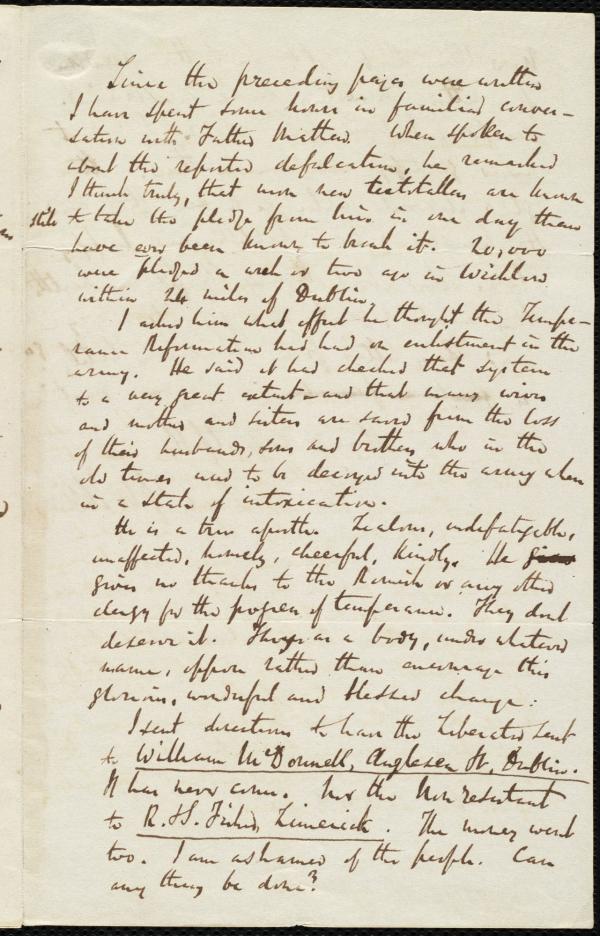 Since the preceding pages were written
I have spent some hours in familiar conver-
sation with Father Mathew. When spoken to
about the reported defalcation, he remarked
I think truly, that more new teetotallers are known
stile to take the pledge from him in one day than
have ever been known to break it. 20,000
were pledged a week or two ago in Wicklow
within 24 miles of Dublin.
I asked him what effect he thought the Tempe-
rance Reformation had had on enlistment in the
army. He said it had checked that system
to a very great extent - and that many wives
and mothers and sisters are saved from the loss
of their husbands, sons and brothers, who in the
old times used to be decoyed into the army when
in a state of intoxication.
He is a true apostle. Zealous, indefatigable,
unaffected, homely, cheerful, kindly. He
gives no thanks to the Romish or any other
clergy for the progress of temperance. They dont
deserve it. They as a body, under whatever
name, oppose rather than encourage this
glorious, wonderful and blessed change.
I sent directions to have the Liberator sent
to William McDonnell, Anglesea St, Dublin.
It has never come. Nor the Non resistant
to R. Fisher, Limerick. The money went
too. I am ashamed of the people. Can
any thing be done?